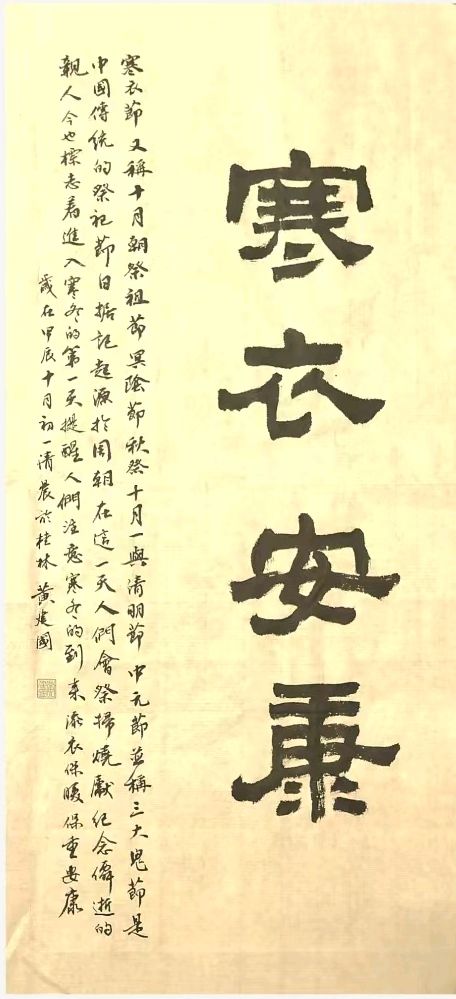 寒衣安康
寒衣節又稱十月朝祭祖節冥陰節秋祭十月一與清明節中元節並稱三大鬼節是
中國傳統的祭祀節日据記起源於周朝在這一天人們會祭掃燒獻紀念僻逝的
親人今也標志着進入寒冬的第一天提醒人們注意寒冬的到來添衣保暖保重安康
歲在甲辰十月初一清晨於桂林 黄建國